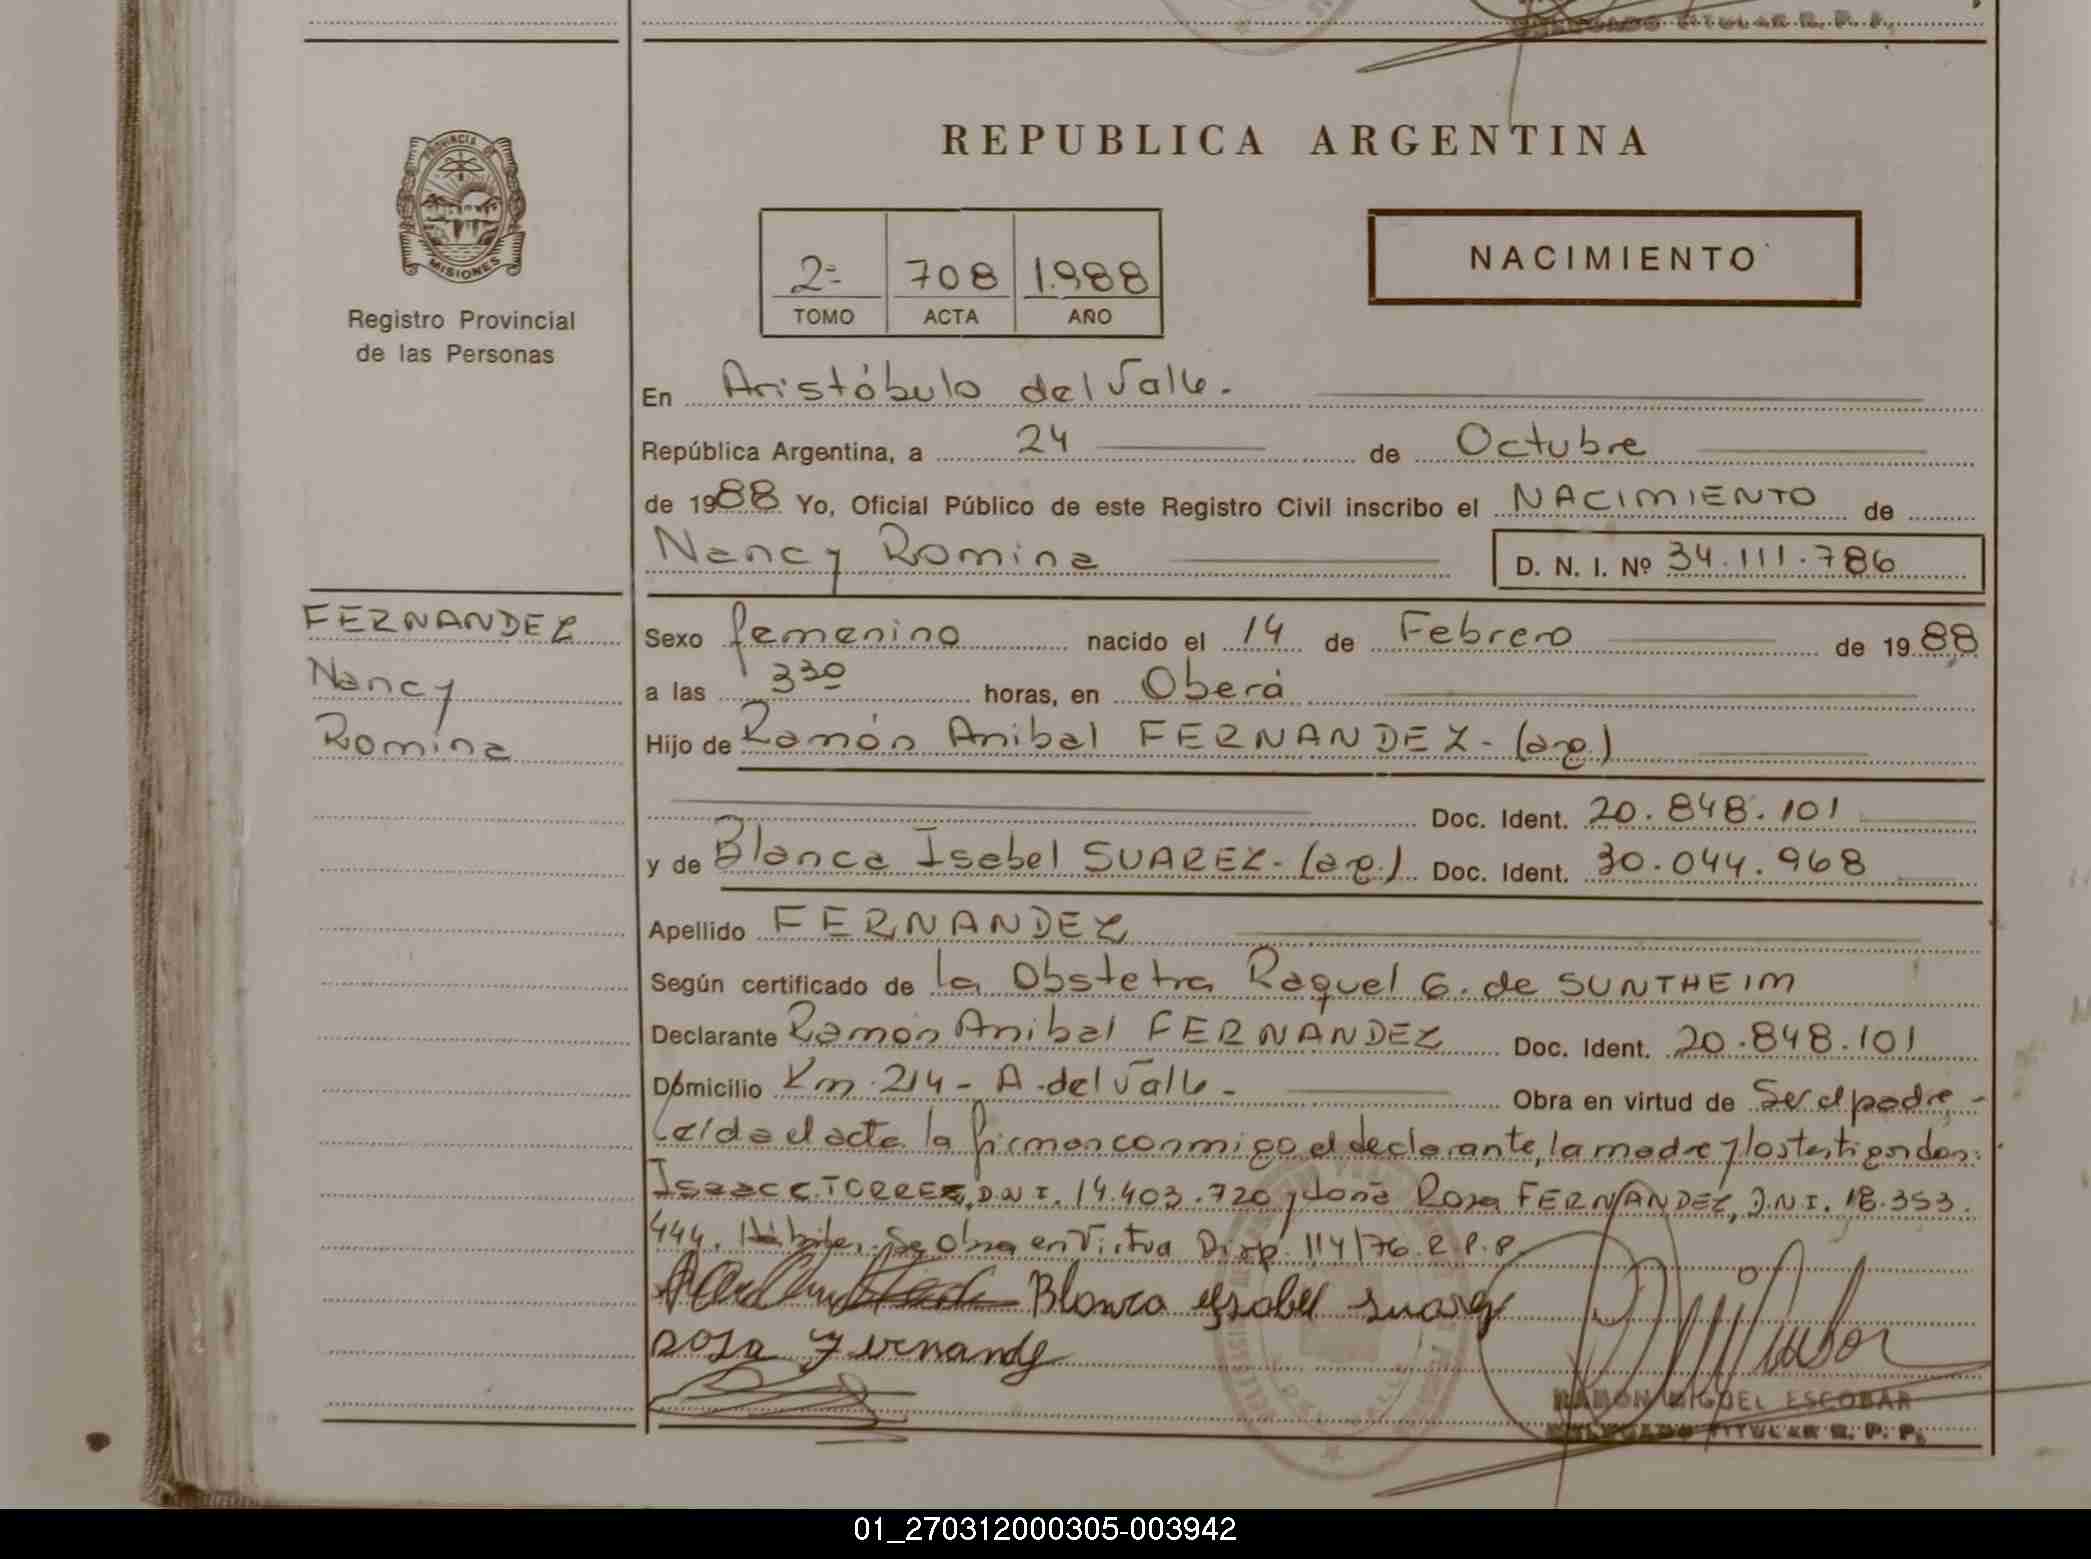 PROVINCIA DE
MISIONES
Registro Provincial
de las Personas
REPUBLICA ARGENTINA
2=
TOMO
708
ACTA
1.988
AÑO
NACIMIENTO
En Aristóbulo del Valle.
República Argentina, a 24 de Octubre
de 1988 Yo, Oficial Público de este Registro Civil inscribo el NACIMIENTO de
Nancy Romina D. N. I. Nº 34.111.786
FERNANDEZ
Nancy
Romina
Sexo femenino nacido el 14 de Febrero de 1988
a las 3 30 horas, en Oberá
Hijo de Ramón Anibal FERNANDEZ - (arg.)
Doc. Ident. 20.848.101
y de Blanca Isabel SUAREZ - (arg.) Doc. Ident. 30.044.968
Apellido FERNANDEZ
Según certificado de la Obstetra Raquel G. de SUNTHEIM
Declarante Ramón Anibal FERNANDEZ Doc. Ident. 20.848.101
Domicilio Km. 214 - A. del Valle - Obra en virtud de Ser el padre -
Leída el acta la firman conmigo el declarante, la madre y los testigos don:
Isaac C. TORRES, D.N.I. 14.403.720 y doña Rosa FERNANDEZ, D.N.I. 18.353.
444. Hábiles. Se obra en Virtud Disp. 114/76. R.P.P.
Blanca ysabel suarez
rosa Fernande
RAMON MIGUEL ESCOBAR
DELEGADO TITULAR R. P. P.
01_270312000305-003942